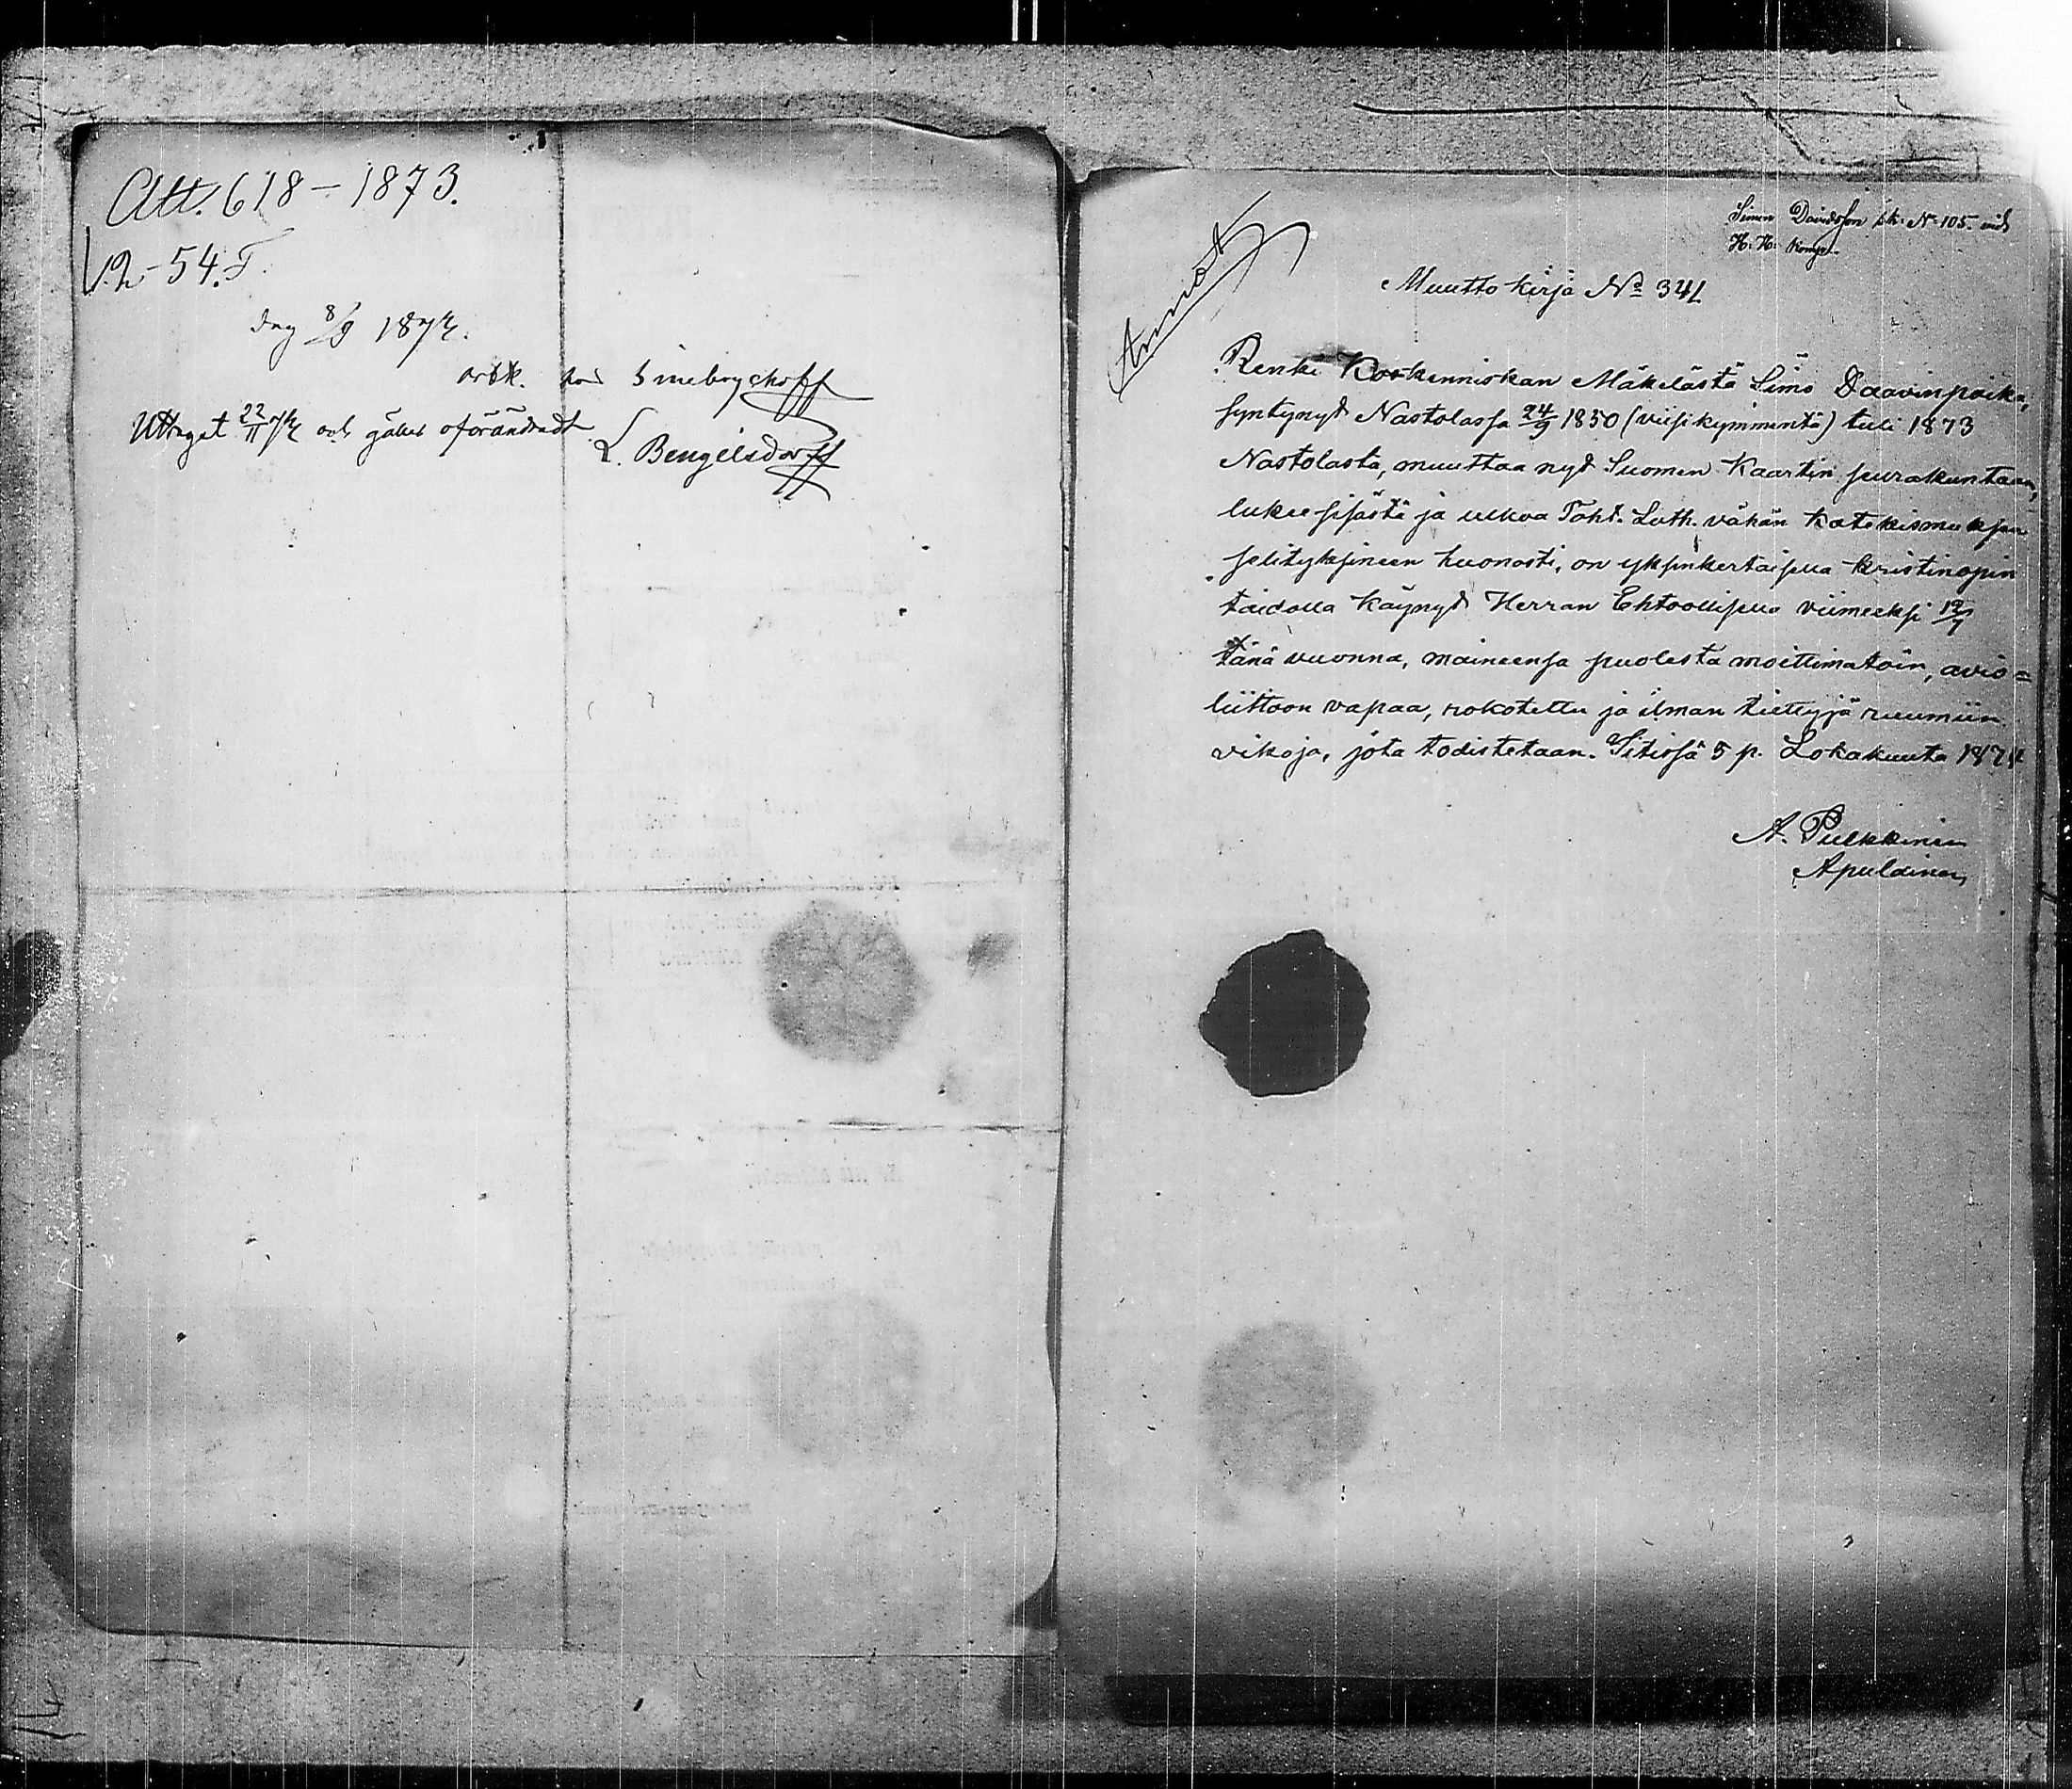 Att. 618-1873.
V.2-54.F.
dag 8/9 1874.
arbk. hos Sinebrychoff
Uttaget 22/11 74 och gäller oförändradt
L. Bengelsdorff
Simon Davidsson sk. No 105. vid
H. H. Komp.
Muuttokirja No 341
Renki Koskenniskan Mäkelästä Simo Daavinpoika,
syntynyd Nastolassa 24/9 1850 (viisikymmentä) tuli 1873
Nastolasta, muuttaa nyd Suomen Kaartin seurakuntaan,
lukee sisästä ja ulkoa Toht. Luth. vähän katekismuksen
selityksineen huonosti, on yksinkertaisella kristinopin
taidolla käynyd Herran Ehtoollisella viimeeksi 12/7
tänä vuonna, maineensa puolesta moittimatoin, avio=
liittoon vapaa, rokotettu ja ilman tiettyjä ruumiin
vikoja, jota todistetaan. Iitissä 5 p. Lokakuuta 1874
A. Pulkkinen
Apulainen